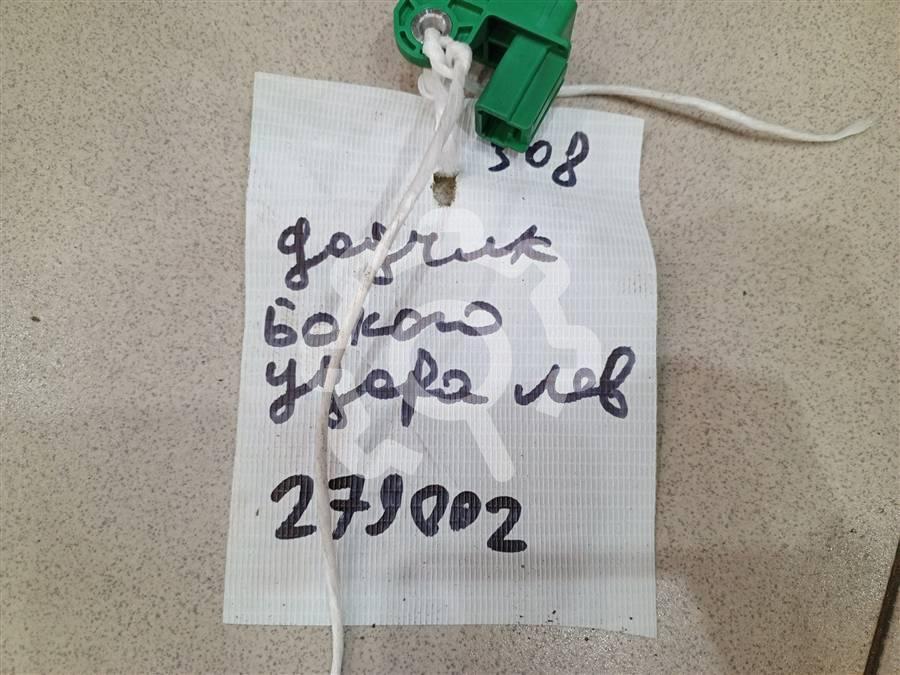 308
датчик
боково
удара лев
279002